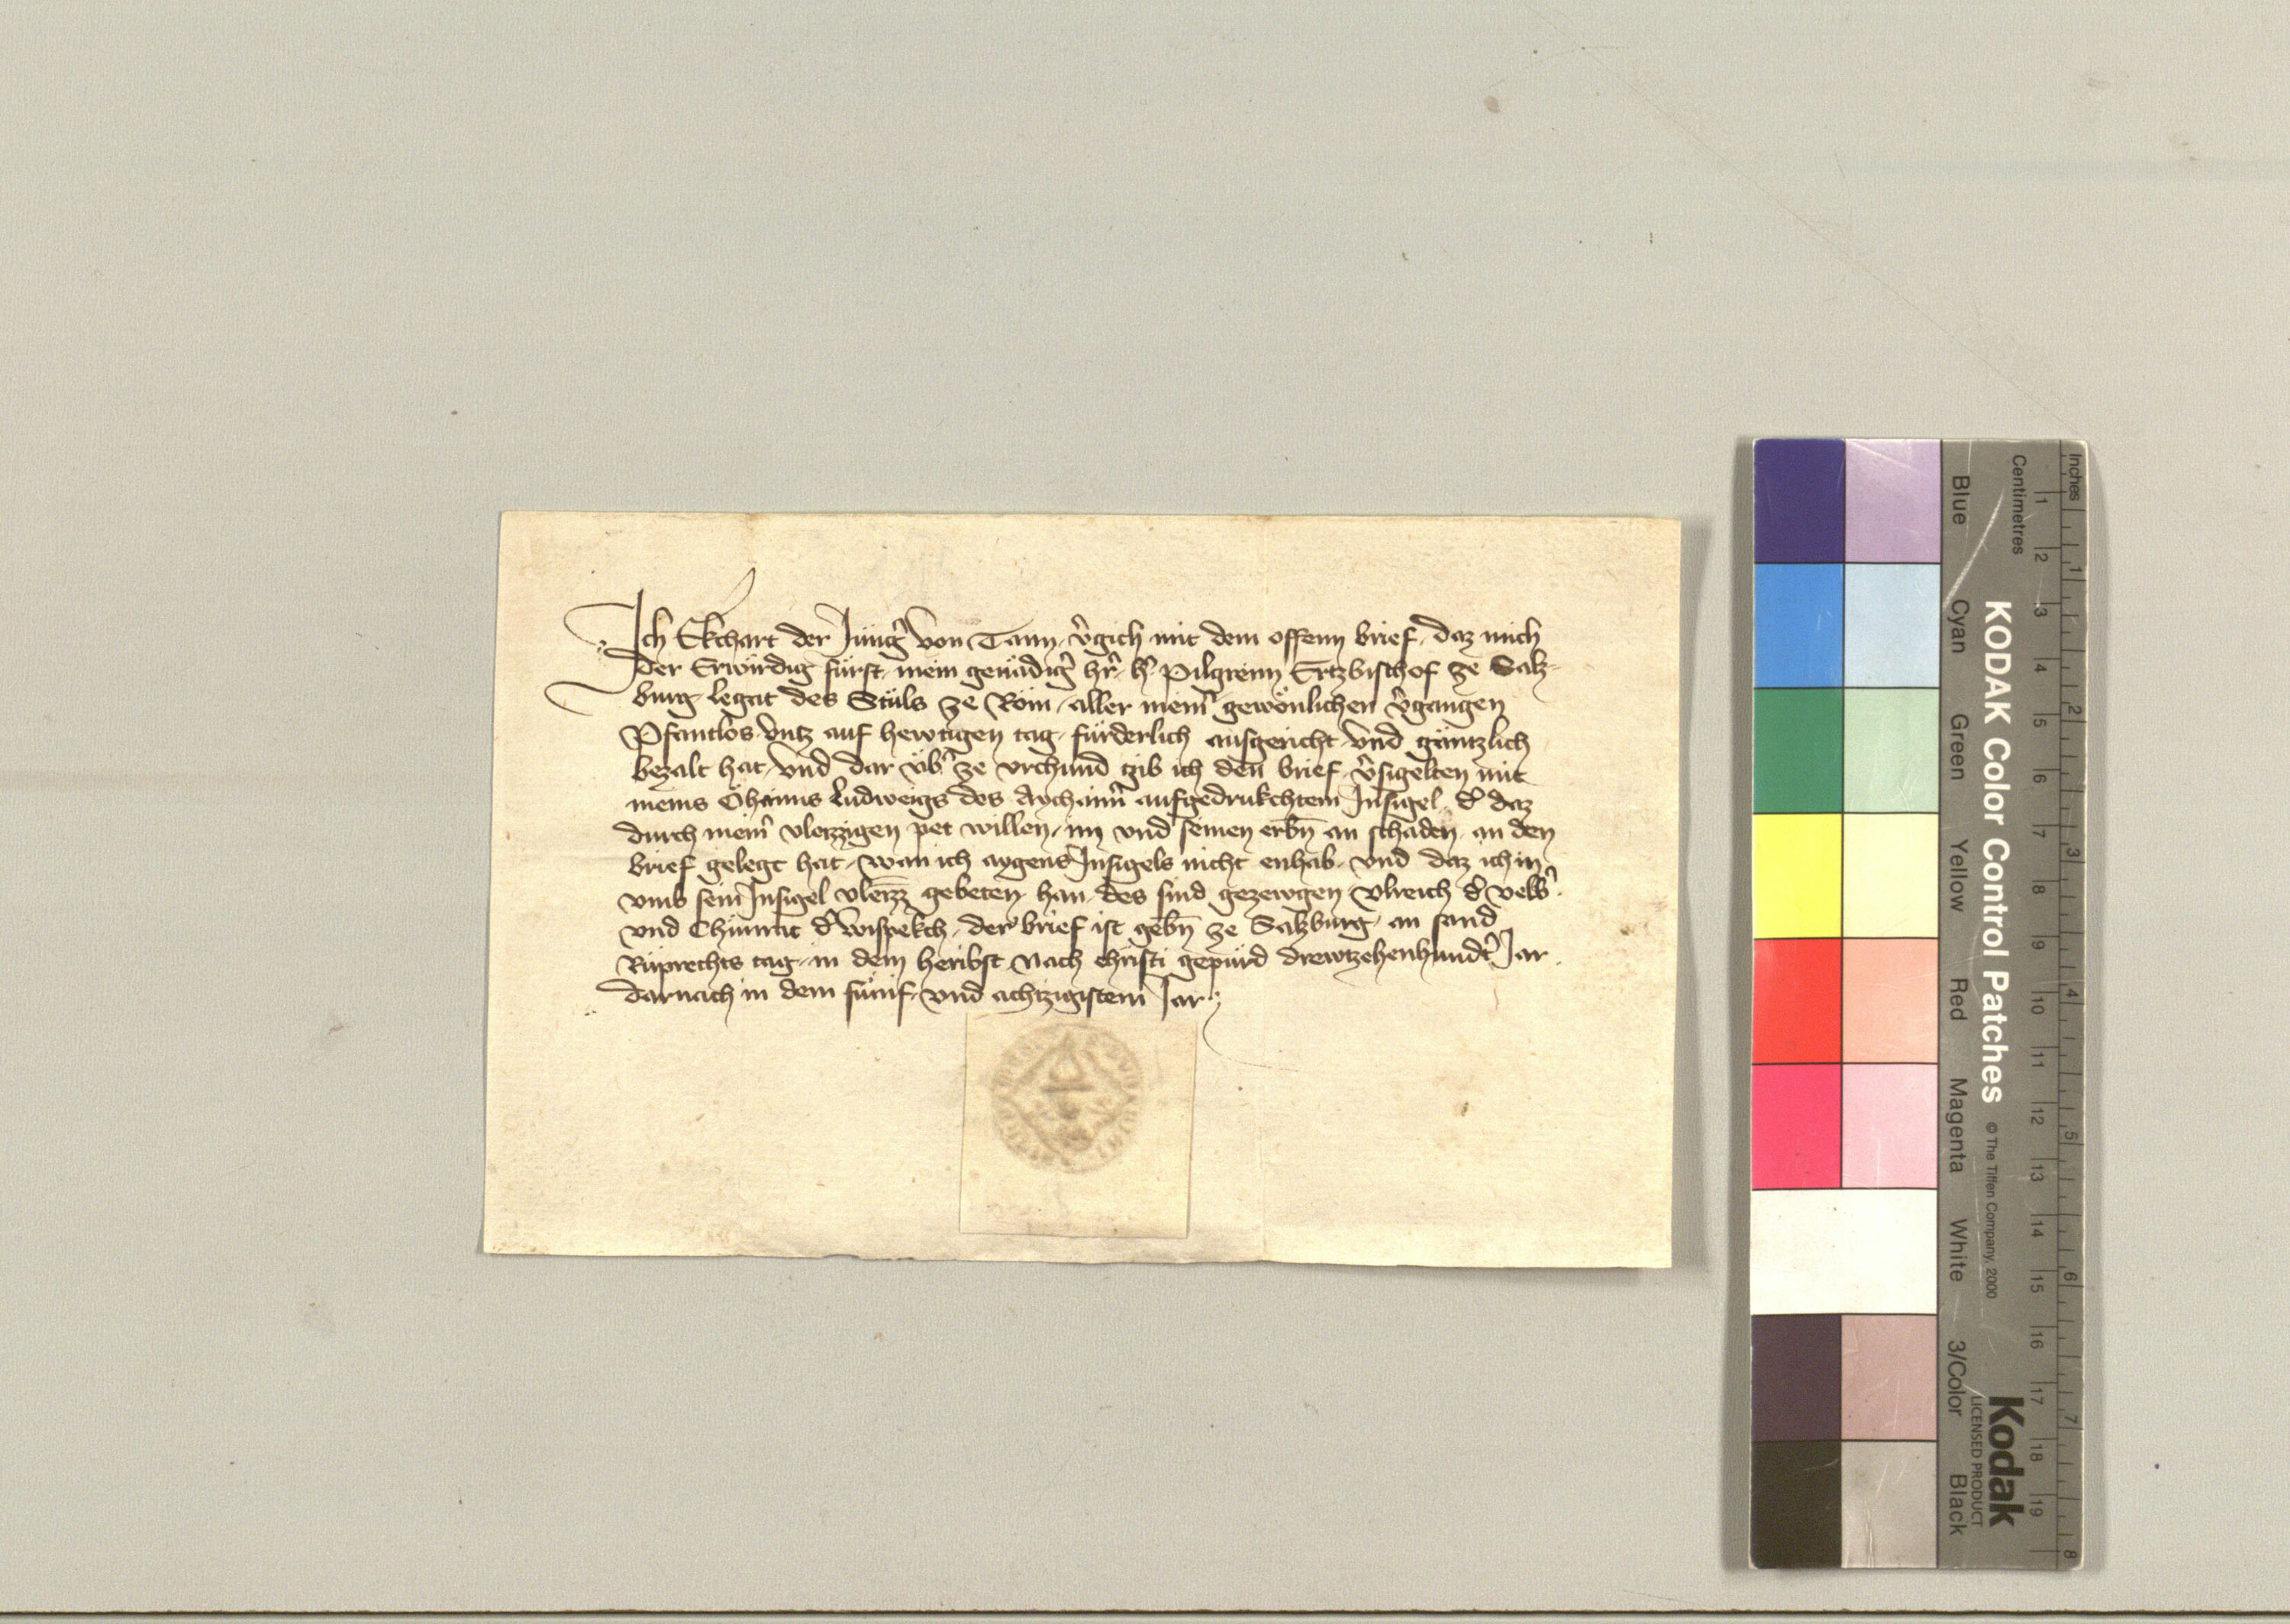 Ich Ekchart der Jüng̉ von Tann, v̉gich mit dem offenn brief, daz mich
der Erwirdig fürst, mein genädig̉ hr̉, h̉ Pilgreim Ertzbischof ze Salz-
burg, legat des Stůls ze Rom, aller meiñ gewönlichen v̉gangen
Pfantlos, vntz auf hewtigen tag, fürderlich ausgericht, vnd gäntzlich
bezalt hat, vnd dar üb̉ ze vrchund gib ich den brief, v̉sigelten mit
meins Öhaims Ludweigs des Aychaim̉ aufgedrukchtem Insigel, d̉ daz
durch meiñ vleizzigen pet willen, im vnd seinen erbn̄ an schaden, an den
brief gelegt hat, wan ich aygens Insigels nicht enhab, vnd daz ich in
vmb sein Insigel vleizz̄ gebeten han, des sind gezewgen, Vlreich d̉ velb̉
vnd Chunrat d̉ Wispekch, der brief ist gebn̄ ze Salzburg, an sand
Rüprechts tag, in dem heribst, Nach christi gepürd drewtzehenhundt̉ Jar
darnach in dem fünif, vnd achtzigistem Jar
KODAK Color Control Patches
© The Tiffen Company, 2000
Kodak
LICENSED PRODUCT
Inches
Centimetres
Blue
Cyan
Green
Yellow
Red
Magenta
White
3/Color
Black
1 2 3 4 5 6 7 8 9 10 11 12 13 14 15 16 17 18 19
1 2 3 4 5 6 7 8